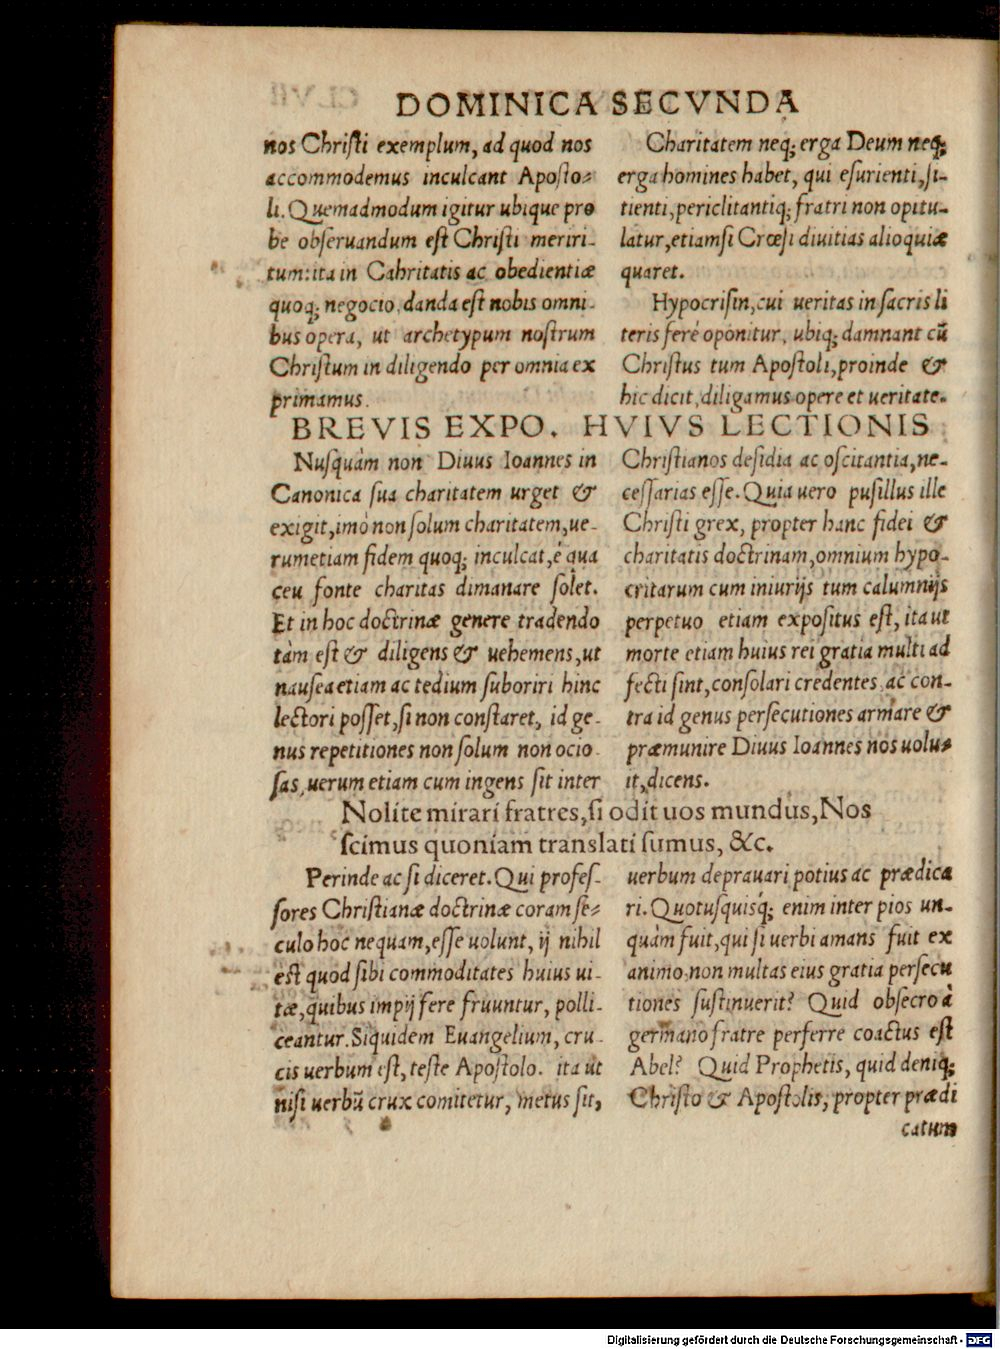 DOMINICA SECVNDA
nos Christi exemplum, ad quod nos
accommodemus inculcant Aposto⸗
li. Quemadmodum igitur ubique pro
be obseruandum est Christi meriri-
tum: ita in Cahritatis ac obedientiæ
quoq; negocio, danda est nobis omni-
bus opera, ut archetypum nostrum
Christum in diligendo per omnia ex
primamus.
Charitatem neq; erga Deum neq;
erga homines habet, qui esurienti, si-
tienti, periclitantiq; fratri non opitu-
latur, etiamsi Crœsi diuitias alioquiæ
quaret.
Hypocrisin, cui ueritas in sacris li
teris ferè oponitur, ubiq; damnant cũ
Christus tum Apostoli, proinde &
hic dicit, diligamus opere et ueritate.
BREVIS EXPO. HVIVS LECTIONIS
Nusquàm non Diuus Ioannes in
Canonica sua charitatem urget &
exigit, imò non solum charitatem, ue-
rumetiam fidem quoq; inculcat, è qua
ceu fonte charitas dimanare solet.
Et in hoc doctrinæ genere tradendo
tàm est & diligens & uehemens, ut
nausea etiam ac tedium suboriri hinc
lectori posset, si non constaret, id ge-
nus repetitiones non solum non ocio-
sas, uerum etiam cum ingens sit inter
Christianos desidia ac oscitantia, ne-
cessarias esse. Quia uero pusillus ille
Christi grex, propter hanc fidei &
charitatis doctrinam, omnium hypo-
critarum cum iniurijs tum calumnijs
perpetuo etiam expositus est, ita ut
morte etiam huius rei gratia multi ad
fecti sint, consolari credentes, ac con-
tra id genus persecutiones armare &
præmunire Diuus Ioannes nos uolu⸗
it, dicens.
Nolite mirari fratres, si odit uos mundus, Nos
scimus quoniam translati sumus, &c.
Perinde ac si diceret. Qui profes-
sores Christianæ doctrinæ coram se⸗
culo hoc nequam, esse uolunt, ij nihil
est quod sibi commoditates huius ui-
tæ, quibus impij fere fruuntur, polli-
ceantur. Siquidem Euangelium, cru-
cis uerbum est, teste Apostolo. ita ut
nisi uerbũ crux comitetur, metus sit,
uerbum deprauari potius ac prædica
ri. Quotusquisq́; enim inter pios un-
quàm fuit, qui si uerbi amans fuit ex
animo, non multas eius gratia persecu
tiones sustinuerit? Quid obsecro à
germano fratre perferre coactus est
Abel? Quid Prophetis, quid deniq;
Christo & Apostolis, propter prædi
catum
Digitalisierung gefördert durch die Deutsche Forschungsgemeinschaft - DFG